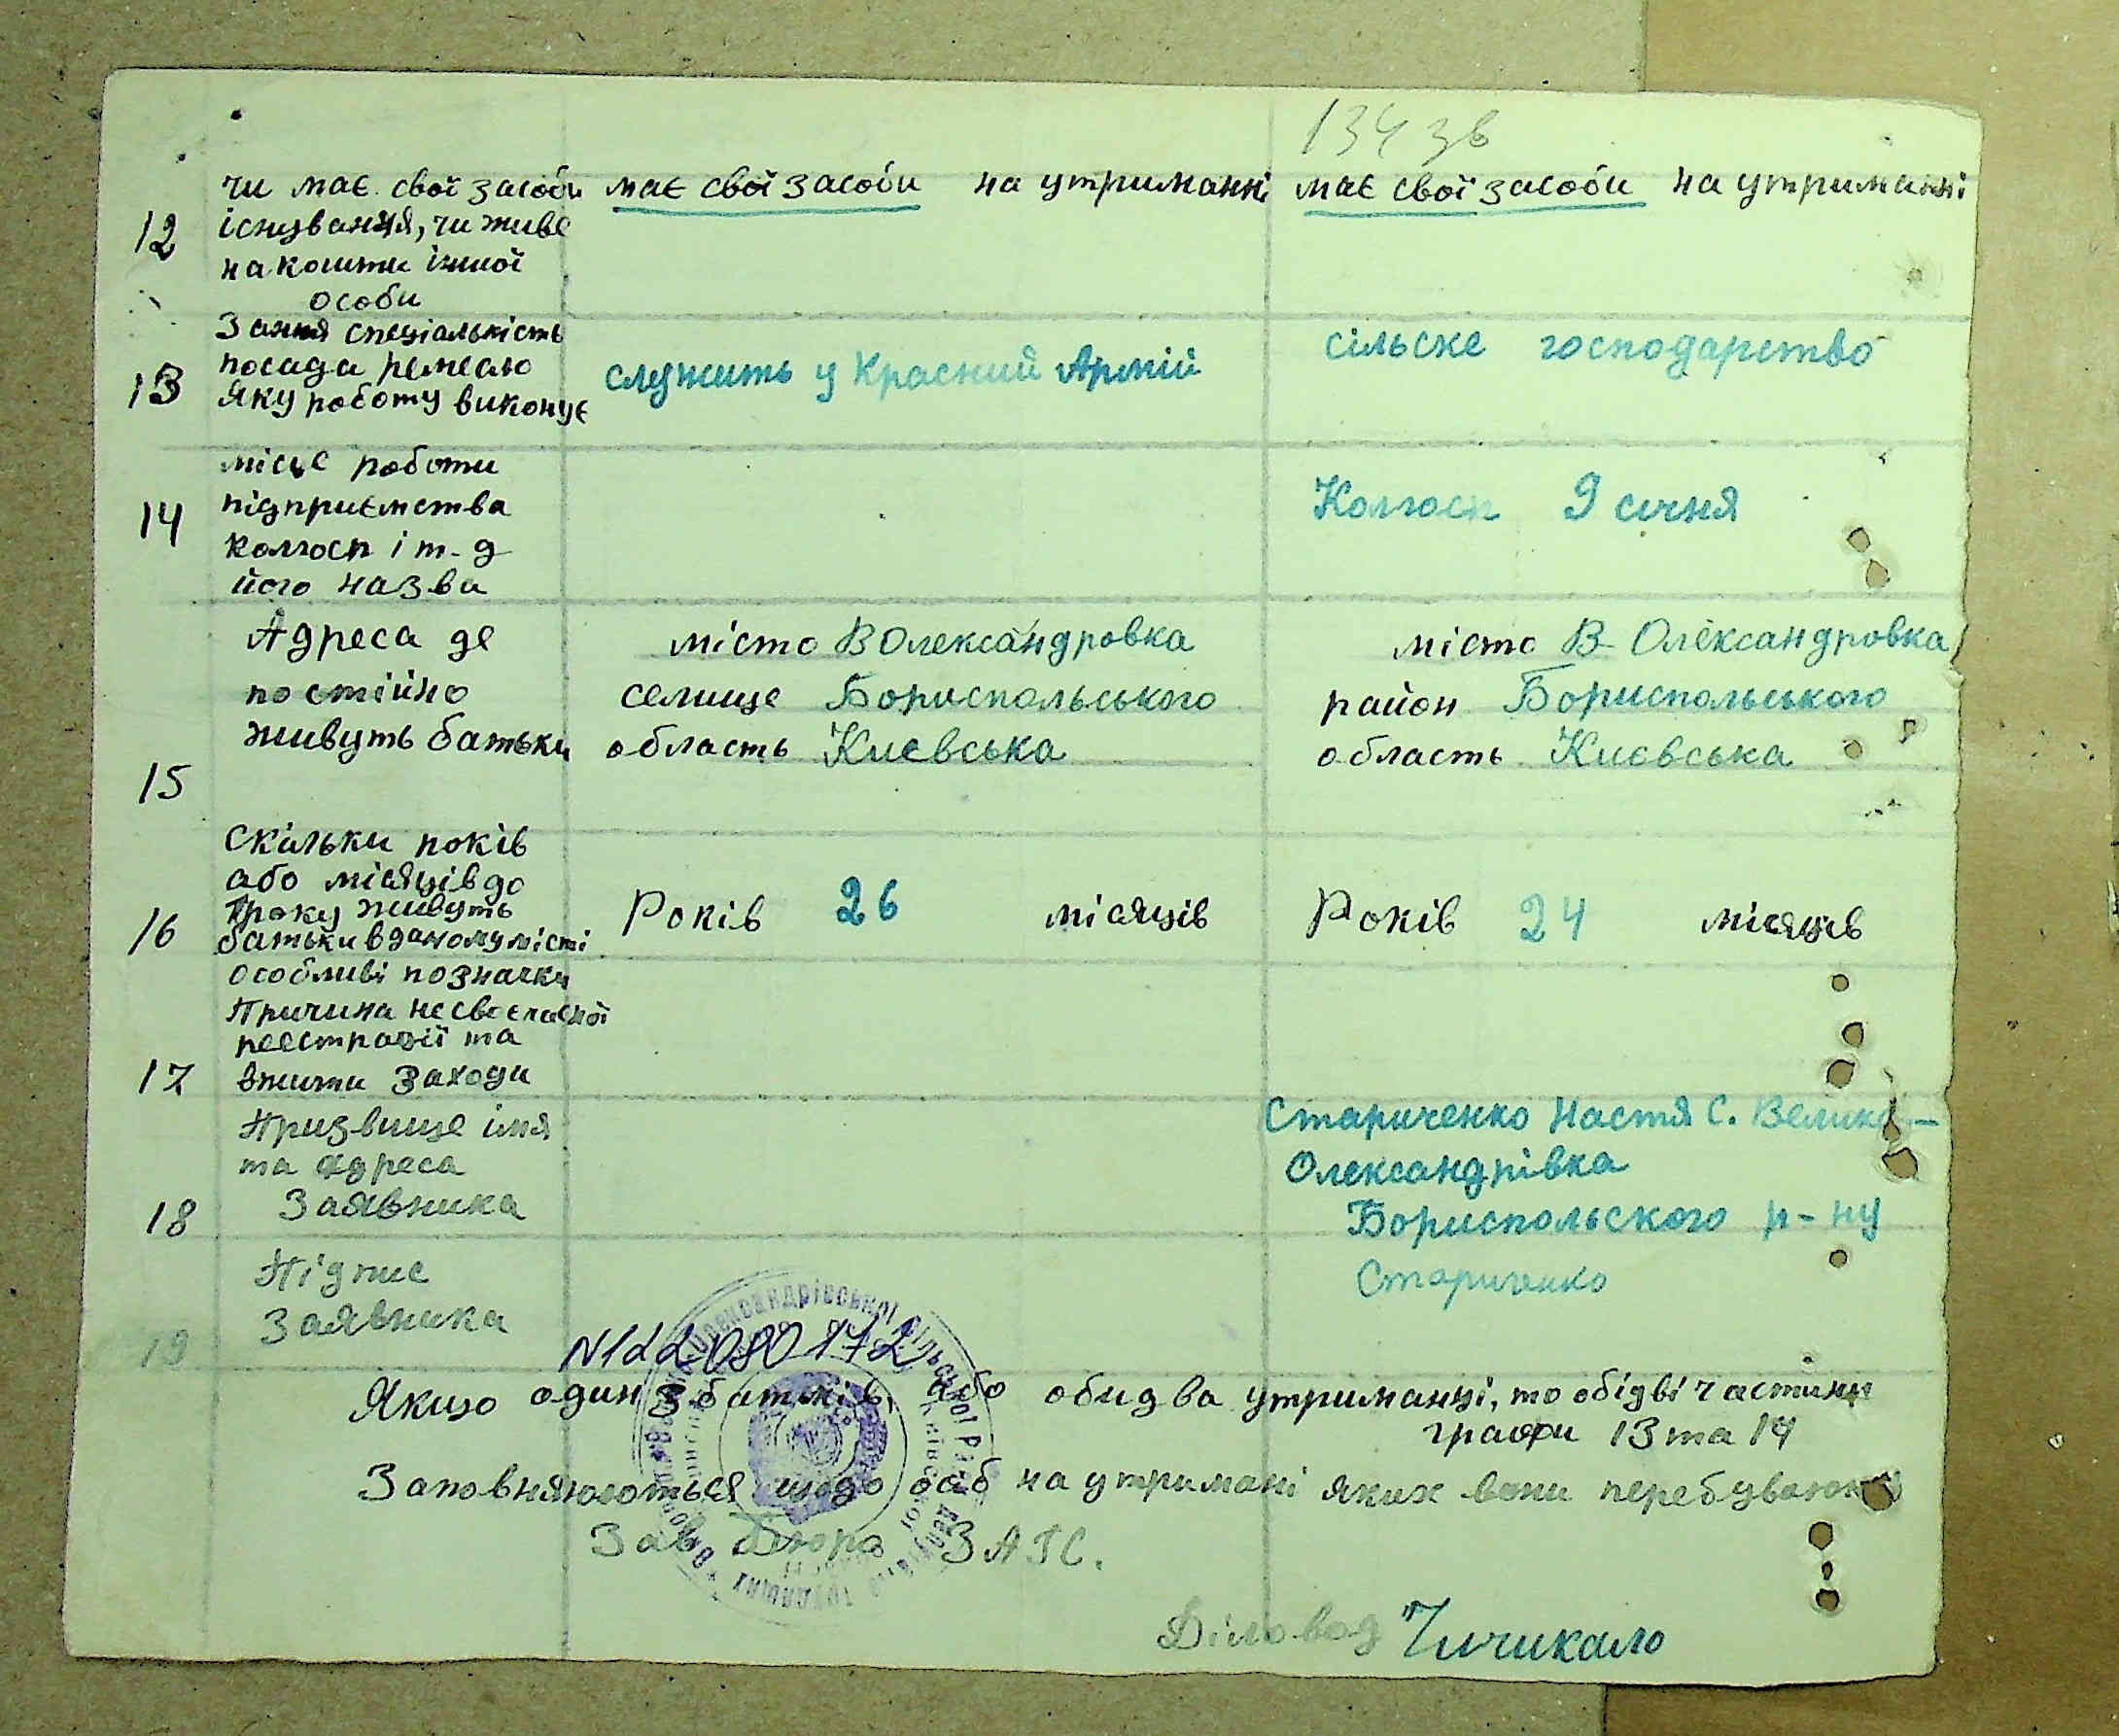 134 зв
чи має свої засоби має свої засоби на утриманні має свої засоби на утриманні
12 існування, чи живе
на кошти іншої
особи
Заняя спеціалькість
посада ремесло служить у Красний Армій сільске господарство
13 яку роботу виконує
місце роботи
14 підприємства Колгосп 9 січня
колгосп і т-д
його назва
Адреса де місто В Олександровка місто В- Олександровка
постійно селище Бориспольського район Бориспольського
живуть батьки область Києвська область Києвська
15
Скільки років
або місяців до
року живуть Років 26 місяців Років 24 місяців
16 батьки в даному місті
особливі позначки
Причина несвоєчасної
реестрації та
17 вжити заходи
Призвище імя Стариченко Настя С. Велика-
та адреса Олександрівка
18 Заявника Бориспольского р-ну
Підпис Стариченко
19 Заявника
N122080172
Якщо один з батьків, або обидва утриманці, то обідві частини
графи 13 та 14
Заповняюються щодо осб на утримані яких вони перебувають
Зав бюро ЗАГС.
Діловод Чичикало